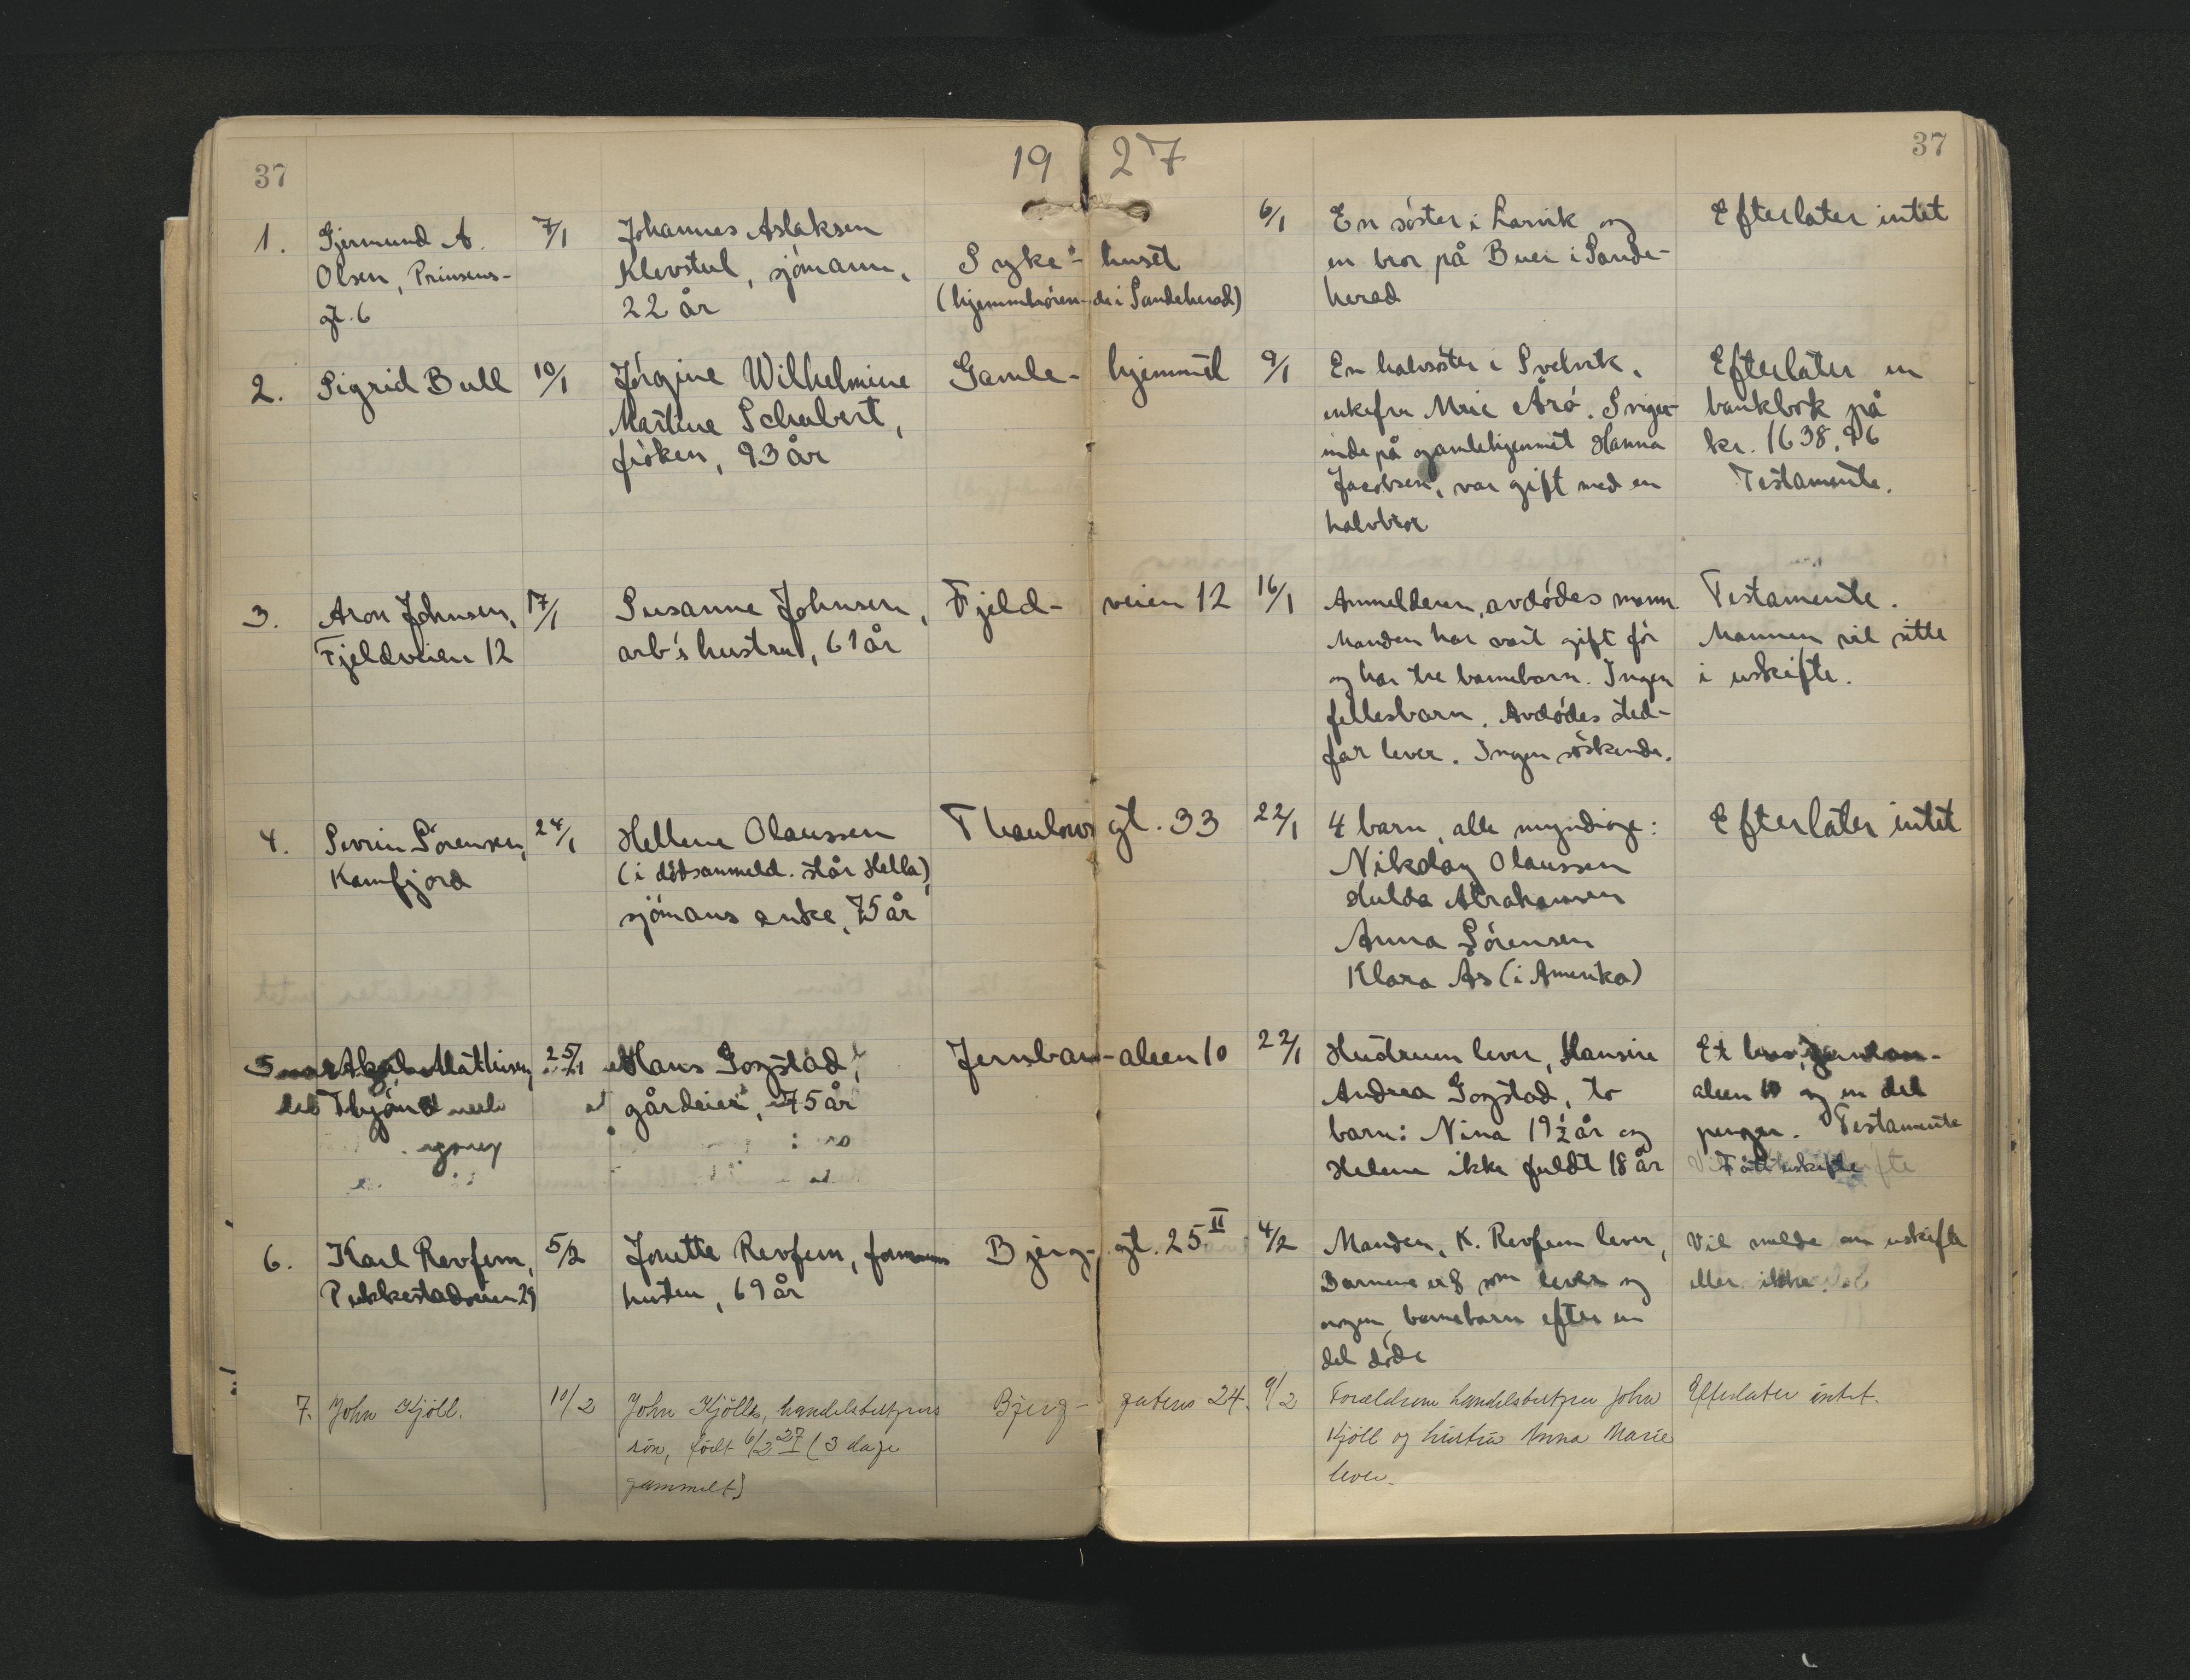 37
19 27
37
1. Gjermund A. 7/1 Johannes Aslaksen Syke- huset 6/1 En søster i Larvik og Efterlater intet
Olsen, Prinsens- Klevstul, sjømann, (hjemmhøren- de i Sandeherad) en bror på Buer i Sande-
gt. 6 22 år herad
2. Sigrid Bull 10/1 Jørgine Wilhelmine Gamle- hjemmet 9/1 En halvsøster i Svelvik, Efterlater en
Martine Schubert, enkefru Mrie Årø. Sviger- bankbok på
frøken, 93 år inde på gamlehjemmet Hanna kr. 1638,96
Jacobsen, var gift med en Testamente.
halvbror
3. Aron Johnsen, 17/1 Susanne Johnsen, Fjeld- veien 12 16/1 Anmelderen, avdødes mann. Testamente.
Fjeldveien 12 arb's hustru, 61 år Manden har vært gift før Mannen vil sitte
og har tre barnebarn. Ingen i uskifte.
fellesbarn. Avdødes sted-
far lever. Ingen søskende.
4. Severin Sørensen, 24/1 Hellene Olaussen Thaulows gt. 33 22/1 4 barn, alle myndige: Efterlater intet
Kamfjord (i dødsanmeld. står Hella) Nikolay Olaussen
sjømans enke, 75 år Hulda Abrahamsen
Anna Sørensen
Klara Ås (i Amerika)
5 Mathisen, 25/1 Hans Gogstad, Jernban- aleen 10 22/1 Hustruen lever, Hansine Et
Thjøm gårdeier, 75 år Andrea Gogstad, to aleen 10 og en del
barn: Nina 19½ år og penger. Testamente
Helene ikke fuldt 18 år Fått uskifte
6. Karl Revfem, 5/2 Jonette Revfem, formanns Bjerg- gt. 25 II 4/2 Manden, K. Revfem lever, Vil melde om uskifte
Pukkestadveien 29 husten, 69 år Barnene er 8 som lever og eller ikke.
nogen barnebarn efter en
del døde
7. John Kjöll. 10/2 John Kjölls, handelsbestyrers Bjerg- gatens 24. 9/2 Forældrene handelsbestyrer John Efterlater intet.
sön, født 6/2 27 (3 dage Kjöll og hustru Anna Marie
gammelt) lever.